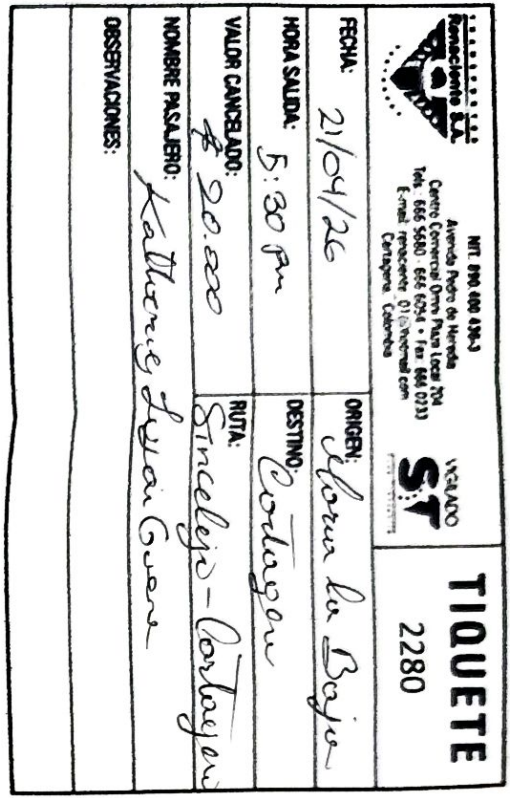 Renaciente S.A.
NIT. 890.400.436-3
Avenida Pedro de Heredia
Centro Comercial Omni Plaza Local 204
Tels.: 666 5680 - 666 6094 • Fax: 666 0233
E-mail: renaciente_01@hotmail.com
Cartagena, Colombia
VIGILADO
ST
TIQUETE
2280
FECHA: 21/04/26
ORIGEN: Maria la Baja
HORA SALIDA: 5:30 pm
DESTINO: Cartagena
VALOR CANCELADO: $ 20.000
RUTA: Sincelejo - Cartagena
NOMBRE PASAJERO: Katherine
OBSERVACIONES: